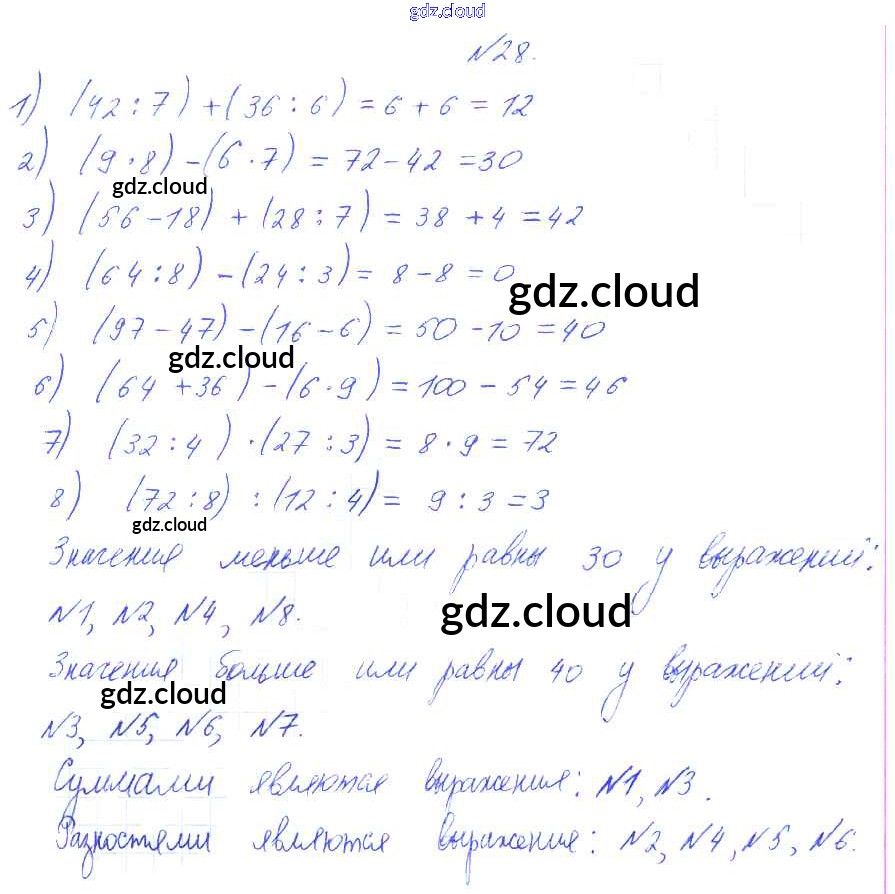 gdz.cloud
№28.
1) (42:7)+(36:6)=6+6=12
2) (9·8)-(6·7)=72-42=30
gdz.cloud
3) (56-18)+(28:7)=38+4=42
4) (64:8)-(24:3)=8-8=0
gdz.cloud
5) (97-47)-(16-6)=50-10=40
gdz.cloud
6) (64+36)-(6·9)=100-54=46
7) (32:4)·(27:3)=8·9=72
8) (72:8):(12:4)=9:3=3
gdz.cloud
Значения меньше или равны 30 у выражений:
№1, №2, №4, №8.
gdz.cloud
Значения больше или равны 40 у выражений:
gdz.cloud
№3, №5, №6, №7.
Суммами являются выражения: №1, №3.
Разностями являются выражения: №2, №4, №5, №6.